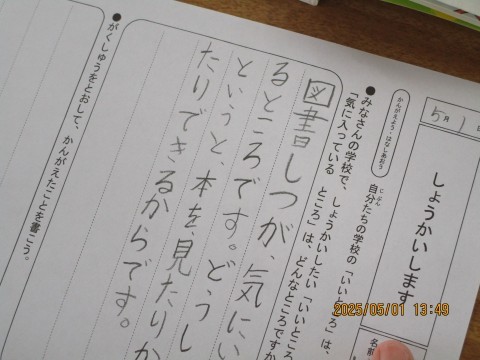 5月1日
しょうかいします
名前
かんがえよう・はなしあおう
自分たちの学校の「いいところ」は、
じぶん
●みなさんの学校で、しょうかいしたい「いいところ
「気に入っている ところ」は、どんなところですか
図書しつが、気にい
るところです。どうし
というと、本を、見たりか
たりできるからです。
●がくしゅうをとおして、かんがえたことを書こう。
2025/05/01 13:49